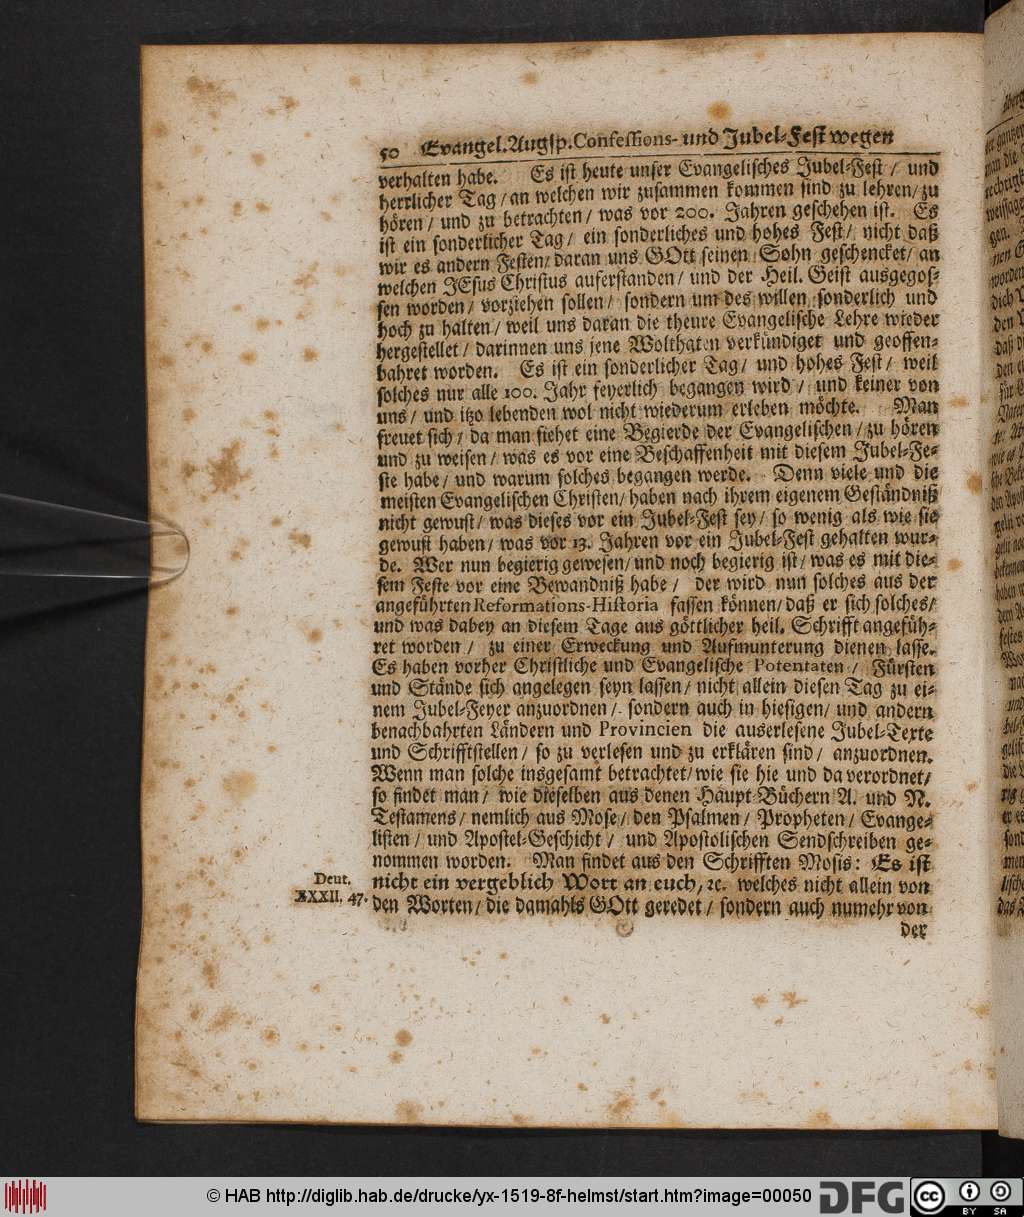 50 Evangel. Augsp. Confessions- und Jubel-Fest wegen
verhalten habe. Es ist heute unser Evangelisches Jubel-Fest / und
herrlicher Tag / an welchen wir zusammen kommen sind zu lehren / zu
hören / und zu betrachten / was vor 200. Jahren geschehen ist. Es
ist ein sonderlicher Tag / ein sonderliches und hohes Fest / nicht daß
wir es andern Festen / daran uns GOtt seinen Sohn geschencket / an
welchen JEsus Christus auferstanden / und der Heil. Geist ausgegos-
sen worden / vorziehen sollen / sondern um des willen sonderlich und
hoch zu halten / weil uns daran die theure Evangelische Lehre wieder
hergestellet / darinnen uns jene Wolthaten verkündiget und geoffen-
bahret worden. Es ist ein sonderlicher Tag / und hohes Fest / weil
solches nur alle 100. Jahr feyerlich begangen wird / und keiner von
uns / und itzo lebenden wol nicht wiederum erleben möchte. Man
freuet sich / da man siehet eine Begierde der Evangelischen / zu hören
und zu weisen / was es vor eine Beschaffenheit mit diesem Jubel-Fe-
ste habe / und warum solches begangen werde. Denn viele und die
meisten Evangelischen Christen / haben nach ihrem eigenem Geständniß
nicht gewust / was dieses vor ein Jubel-Fest sey / so wenig als wie sie
gewust haben / was vor 13. Jahren vor ein Jubel-Fest gehalten wur-
de. Wer nun begierig gewesen / und noch begierig ist / was es mit die-
sem Feste vor eine Bewandniß habe / der wird nun solches aus der
angeführten Reformations-Historia fassen können / daß er sich solches /
und was dabey an diesem Tage aus göttlicher heil. Schrifft angefüh-
ret worden / zu einer Erweckung und Aufmunterung dienen lasse.
Es haben vorher Christliche und Evangelische Potentaten / Fürsten
und Stände sich angelegen seyn lassen / nicht allein diesen Tag zu ei-
nem Jubel-Feyer anzuordnen / sondern auch in hiesigen / und andern
benachbahrten Ländern und Provincien die auserlesene Jubel-Texte
und Schrifftstellen / so zu verlesen und zu erklären sind / anzuordnen.
Wenn man solche insgesamt betrachtet / wie sie hie und da verordnet /
so findet man / wie dieselben aus denen Haupt-Büchern A. und N.
Testamens / nemlich aus Mose / den Psalmen / Propheten / Evange-
listen / und Apostel-Geschicht / und Apostolischen Sendschreiben ge-
nommen worden. Man findet aus den Schrifften Mosis: Es ist
Deut.
XXXII. 47.
nicht ein vergeblich Wort an euch, ꝛc. welches nicht allein von
den Worten / die damahls GOtt geredet / sondern auch numehr von
der
© HAB http://diglib.hab.de/drucke/yx-1519-8f-helmst/start.htm?image=00050
DFG
cc
BY SA